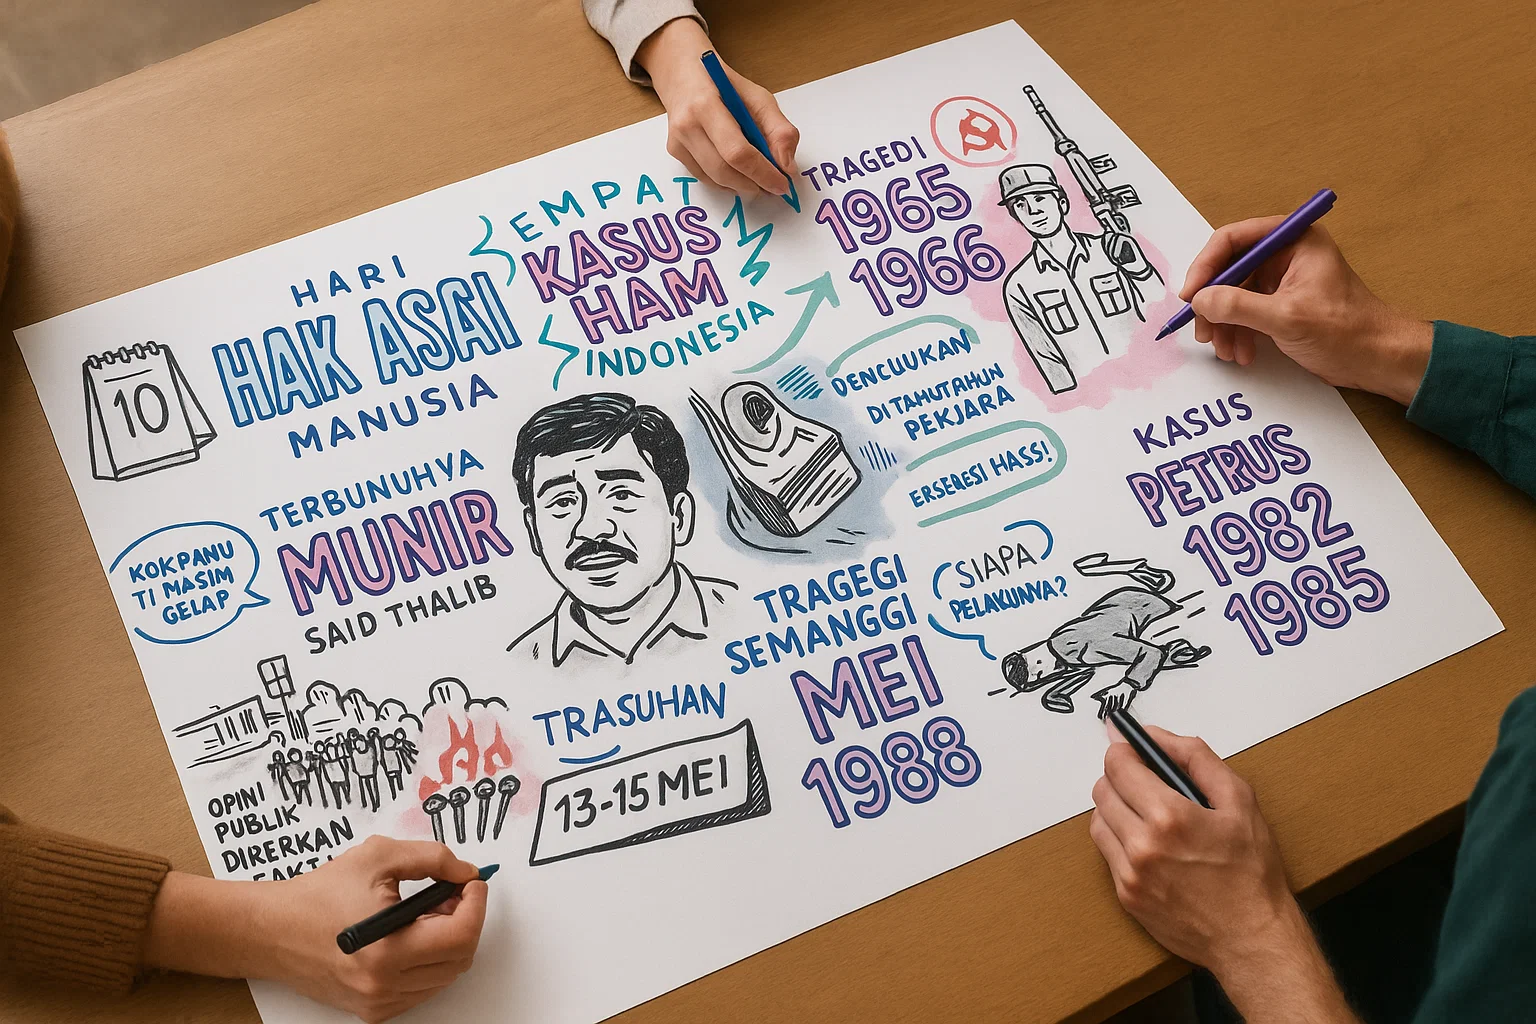 HARI
HAK ASAI
MANUSIA
10
EMPAT
KASUS
HAM
INDONESIA
TRAGEDI
1965
1966
DENCUUKAN
DI TAHUTAHUN
PEKJARA
ERSEBESI HASS!
KASUS
PETRUS
1982
1985
TERBUNUHYA
MUNIR
SAID THALIB
KOKPANU
TI MASIM
GELAP
TRAGEGI
SEMANGGI
MEI
1988
SIAPA
PELAKUNYA?
TRASUHAN
13-15 MEI
OPINI
PUBLIK
DIRERKAN